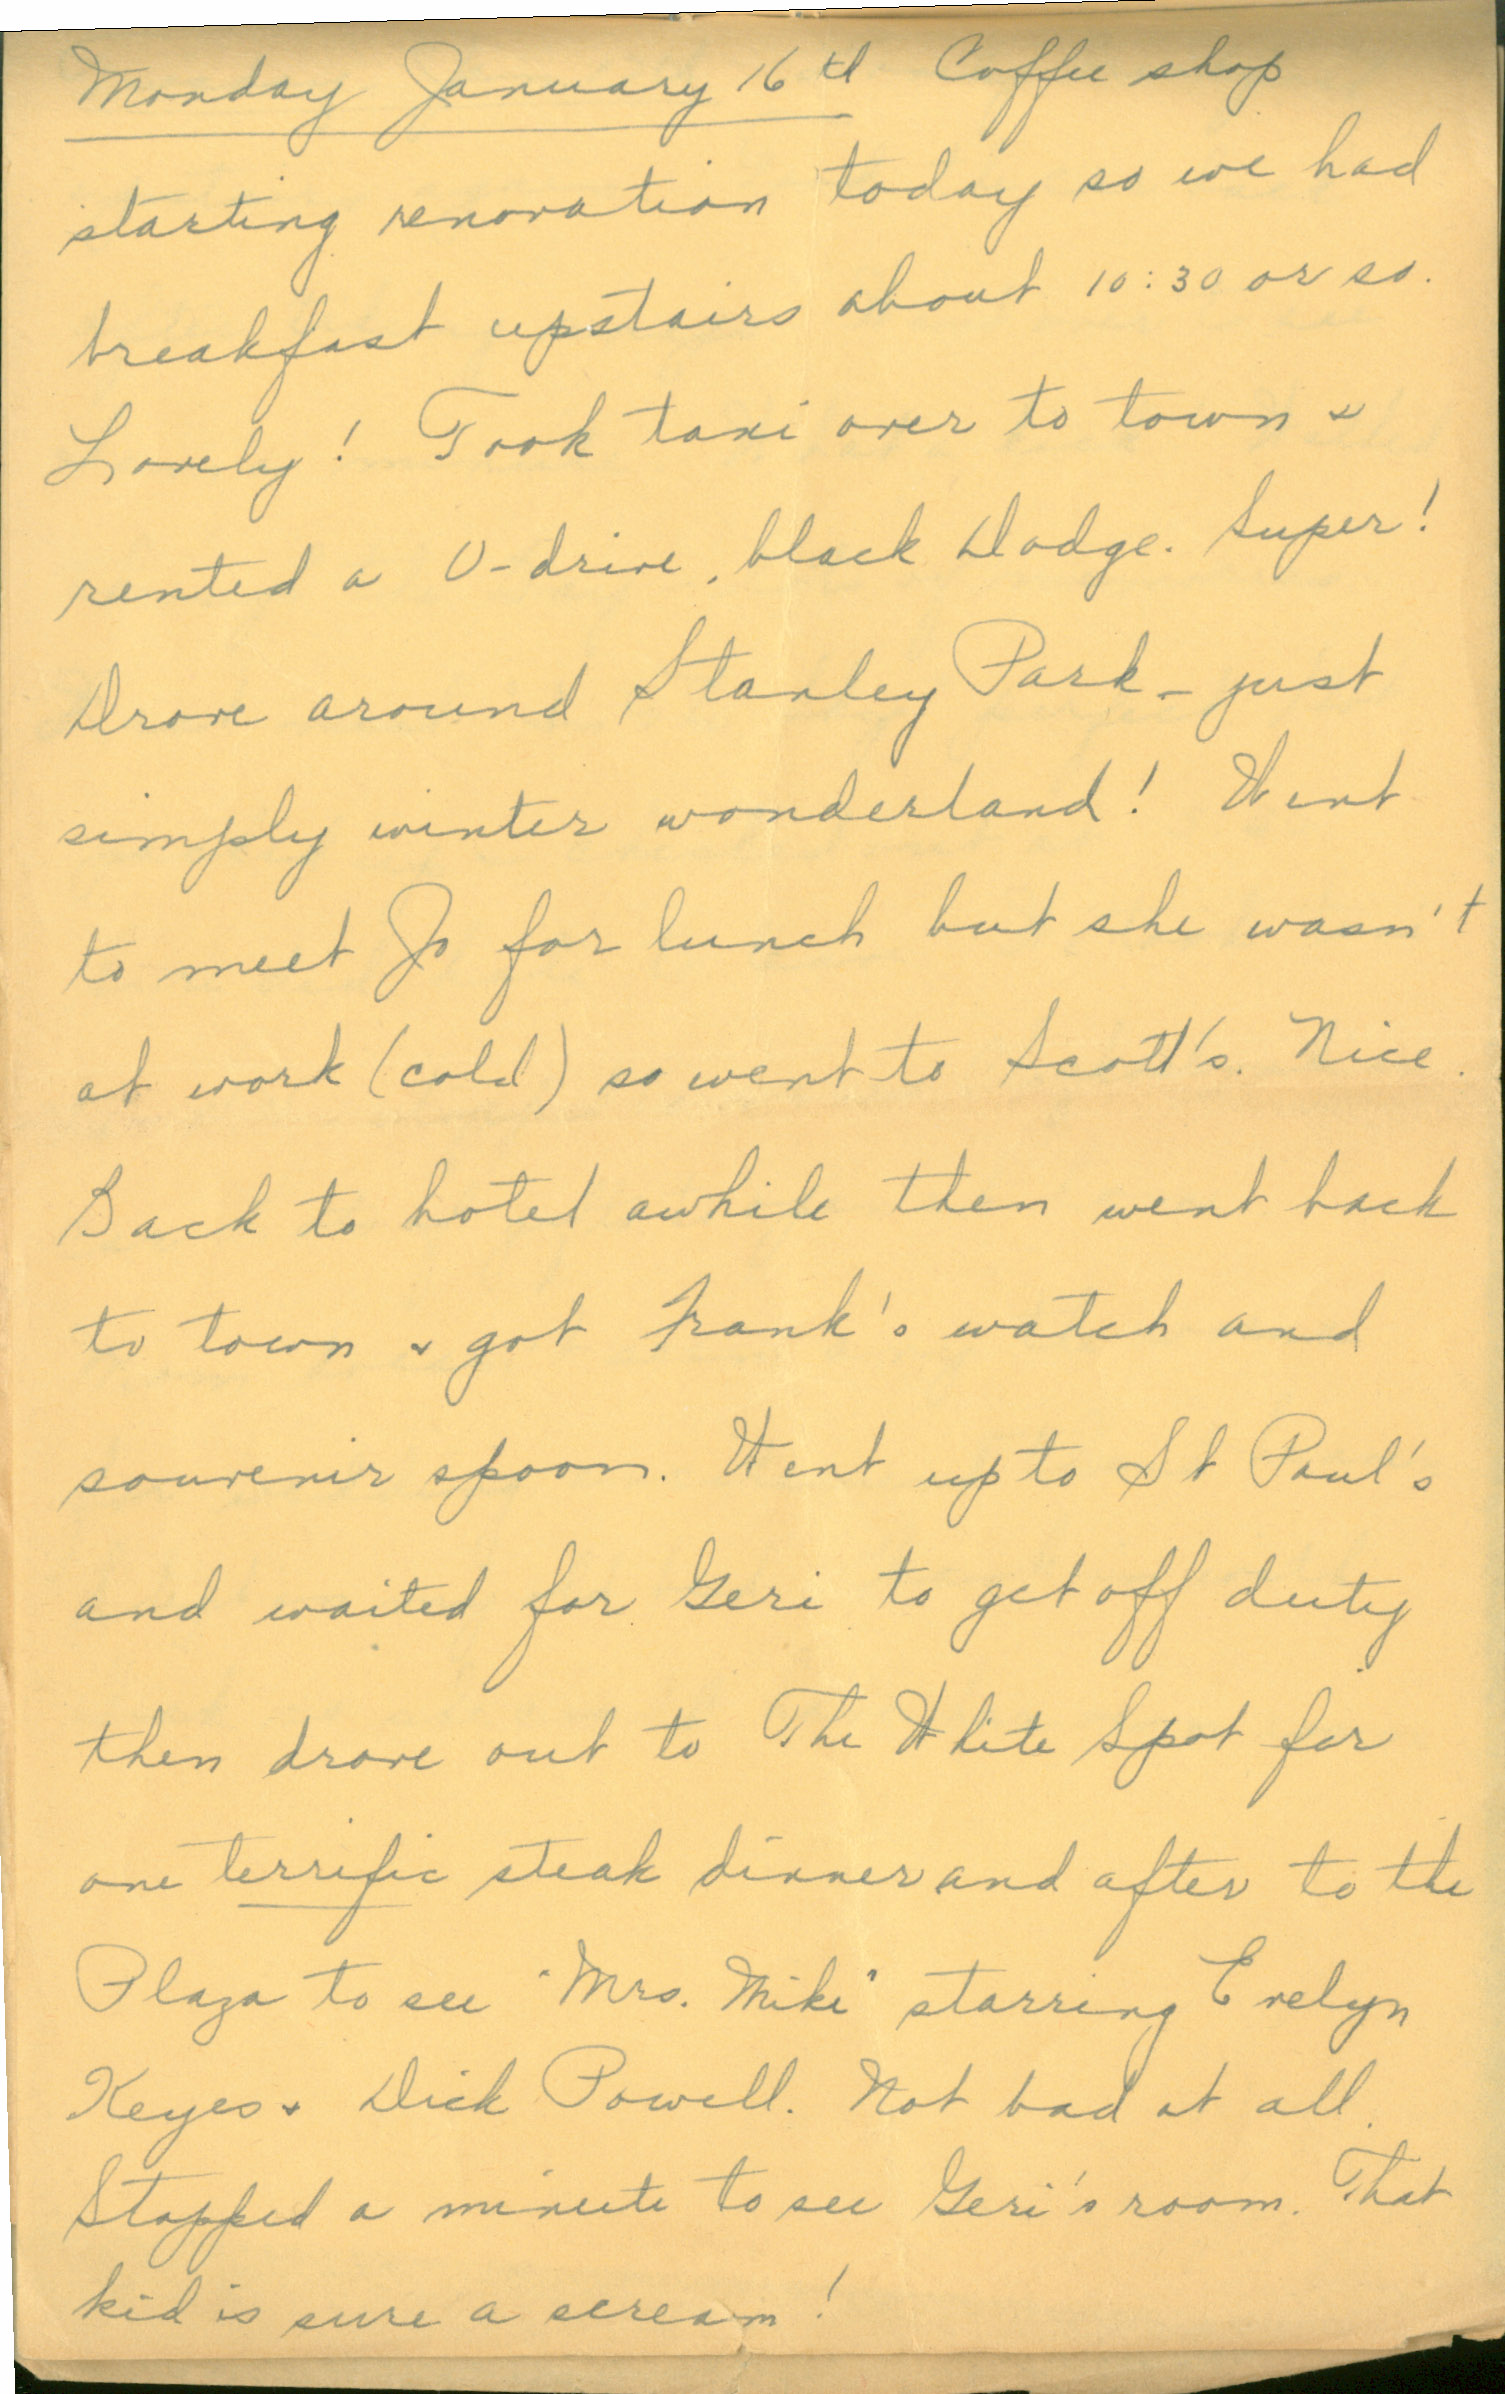 Monday January 16th Coffee shop
starting renovation today so we had
breakfast upstairs about 10:30 or so.
Lovely! Took taxi over to town &
rented a U-drive, black Dodge. Super!
Drove around Stanley Park - just
simply winter wonderland! Went
to meet Jo for lunch but she wasn't
at work (cold) so went to Scott's. Nice.
Back to hotel awhile then went back
to town & got Frank's watch and
souvenir spoon. Went up to St Paul's
and waited for Geri to get off duty
then drove out to The White Spot for
one terrific steak dinner and after to the
Plaza to see "Mrs. Mike" starring Evelyn
Keyes & Dick Powell. Not bad at all.
Stopped a minute to see Geri's room. That
kid is sure a scream!